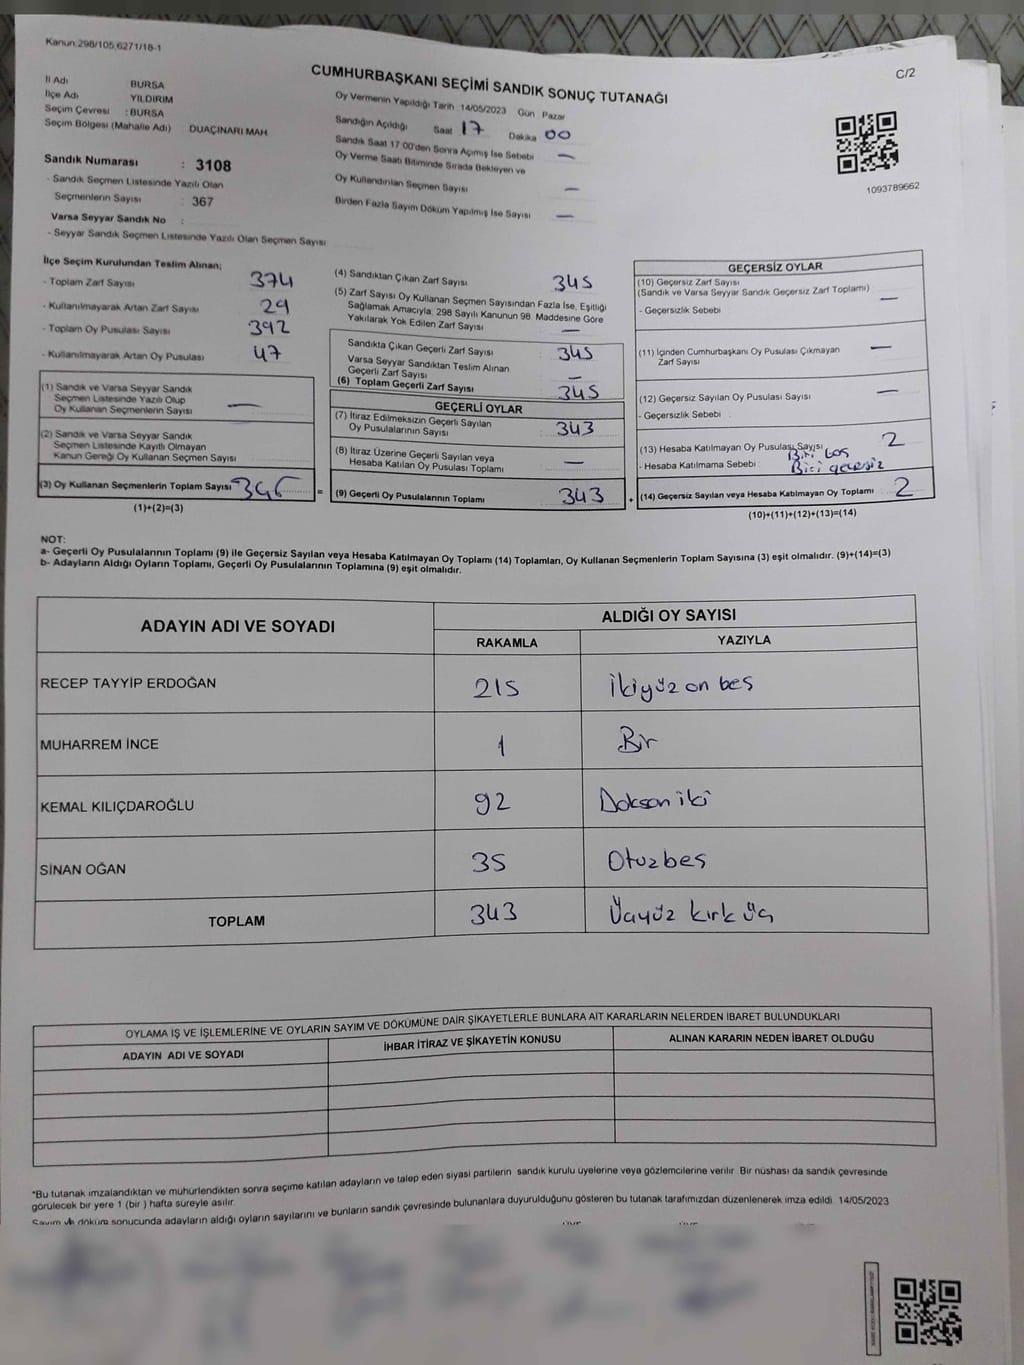 Kanun.298/105,6271/18-1
C/2
CUMHURBAŞKANI SEÇİMİ SANDIK SONUÇ TUTANAĞI
İl Adı BURSA
İlçe Adı YILDIRIM
Seçim Çevresi : BURSA
Seçim Bölgesi (Mahalle Adı) : DUAÇINARI MAH
Oy Vermenin Yapıldığı Tarih : 14/05/2023 Gün Pazar
Sandığın Açıldığı Saat 17 Dakika 00
Sandık Saat 17:00'den Sonra Açımış İse Sebebi —
Oy Verme Saati Bitiminde Sırada Bekleyen ve
Oy Kullandırılan Seçmen Sayısı —
Birden Fazla Sayım Döküm Yapılmış İse Sayısı —
1093789662
Sandık Numarası : 3108
- Sandık Seçmen Listesinde Yazılı Olan
Seçmenlerin Sayısı : 367
Varsa Seyyar Sandık No :
- Seyyar Sandık Seçmen Listesinde Yazılı Olan Seçmen Sayısı
İlçe Seçim Kurulundan Teslim Alınan;
- Toplam Zarf Sayısı 374
- Kullanılmayarak Artan Zarf Sayısı 29
- Toplam Oy Pusulası Sayısı 392
- Kullanılmayarak Artan Oy Pusulası 47
(1) Sandık ve Varsa Seyyar Sandık
Seçmen Listesinde Yazılı Olup
Oy Kullanan Seçmenlerin Sayısı —
(2) Sandık ve Varsa Seyyar Sandık
Seçmen Listesinde Kayıtlı Olmayan
Kanun Gereği Oy Kullanan Seçmen Sayısı
(3) Oy Kullanan Seçmenlerin Toplam Sayısı 345 =
(1)+(2)=(3)
(4) Sandıktan Çıkan Zarf Sayısı 345
(5) Zarf Sayısı Oy Kullanan Seçmen Sayısından Fazla İse, Eşitliği
Sağlamak Amacıyla, 298 Sayılı Kanunun 98. Maddesine Göre
Yakılarak Yok Edilen Zarf Sayısı —
Sandıkta Çıkan Geçerli Zarf Sayısı 345
Varsa Seyyar Sandıktan Teslim Alınan
Geçerli Zarf Sayısı —
(6) Toplam Geçerli Zarf Sayısı 345
GEÇERLİ OYLAR
(7) İtiraz Edilmeksizin Geçerli Sayılan
Oy Pusulalarının Sayısı 343
(8) İtiraz Üzerine Geçerli Sayılan veya
Hesaba Katılan Oy Pusulası Toplamı —
(9) Geçerli Oy Pusulalarının Toplamı 343 +
GEÇERSİZ OYLAR
(10) Geçersiz Zarf Sayısı
(Sandık ve Varsa Seyyar Sandık Geçersiz Zarf Toplamı) —
- Geçersizlik Sebebi :
(11) İçinden Cumhurbaşkanı Oy Pusulası Çıkmayan —
Zarf Sayısı
(12) Geçersiz Sayılan Oy Pusulası Sayısı —
- Geçersizlik Sebebi :
(13) Hesaba Katılmayan Oy Pusulası Sayısı 2
Biri boş
- Hesaba Katılmama Sebebi : Biri geçersiz
(14) Geçersiz Sayılan veya Hesaba Katılmayan Oy Toplamı 2
(10)+(11)+(12)+(13)=(14)
NOT:
a- Geçerli Oy Pusulalarının Toplamı (9) ile Geçersiz Sayılan veya Hesaba Katılmayan Oy Toplamı (14) Toplamları, Oy Kullanan Seçmenlerin Toplam Sayısına (3) eşit olmalıdır. (9)+(14)=(3)
b- Adayların Aldığı Oyların Toplamı, Geçerli Oy Pusulalarının Toplamına (9) eşit olmalıdır.
ADAYIN ADI VE SOYADI
ALDIĞI OY SAYISI
RAKAMLA YAZIYLA
RECEP TAYYİP ERDOĞAN 215 İkiyüz on beş
MUHARREM İNCE 1 Bir
KEMAL KILIÇDAROĞLU 92 Doksan iki
SİNAN OĞAN 35 Otuzbeş
TOPLAM 343 Üçyüz kırk üç
OYLAMA İŞ VE İŞLEMLERİNE VE OYLARIN SAYIM VE DÖKÜMÜNE DAİR ŞİKAYETLERLE BUNLARA AİT KARARLARIN NELERDEN İBARET BULUNDUKLARI
ADAYIN ADI VE SOYADI İHBAR İTİRAZ VE ŞİKAYETİN KONUSU ALINAN KARARIN NEDEN İBARET OLDUĞU
*Bu tutanak imzalandıktan ve mühürlendikten sonra seçime katılan adayların ve talep eden siyasi partilerin sandık kurulu üyelerine veya gözlemcilerine verilir. Bir nüshası da sandık çevresinde
görülecek bir yere 1 (bir ) hafta süreyle asılır.
Sayım ve döküm sonucunda adayların aldığı oyların sayılarını ve bunların sandık çevresinde bulunanlara duyurulduğunu gösteren bu tutanak tarafımızdan düzenlenerek imza edildi. 14/05/2023